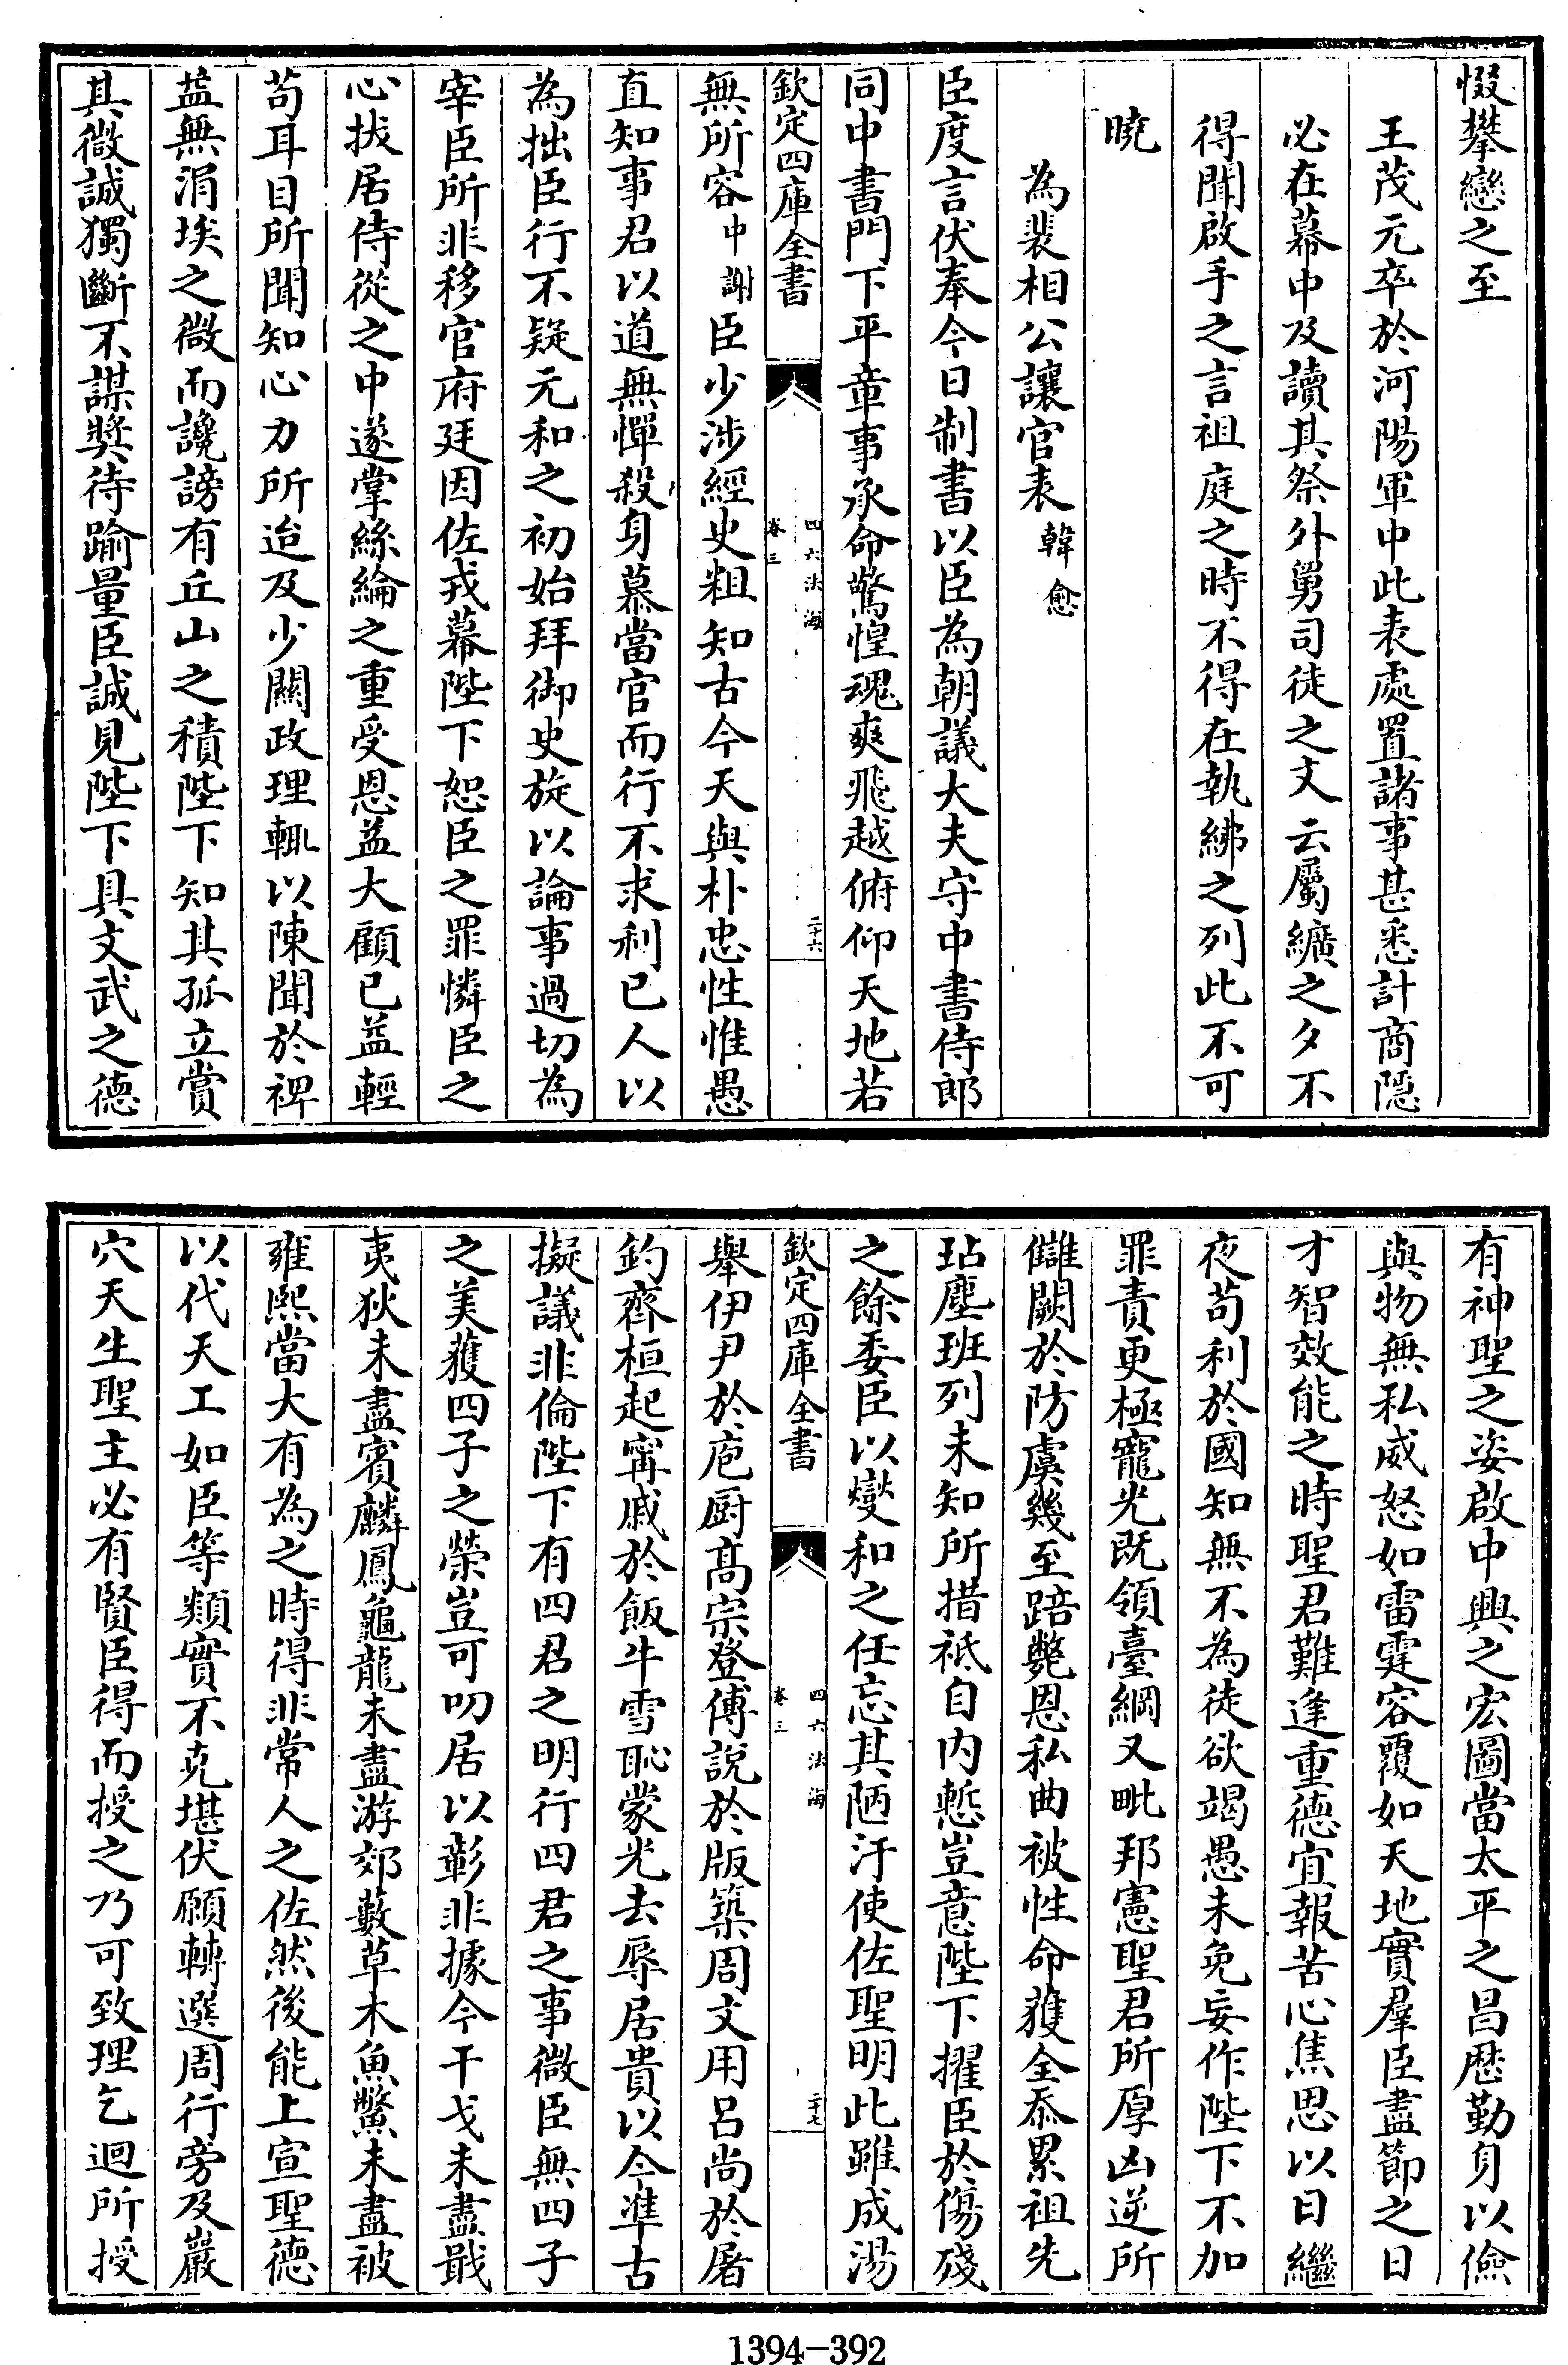 惙攀戀之至
王茂元卒於河陽軍中此表處置諸事甚悉計商隱
必在幕中及讀其祭外舅司徒之文云屬纊之夕不
得聞啟手之言祖庭之時不得在執紼之列此不可
曉
為裴相公讓官表 韓愈
臣度言伏奉今日制書以臣為朝議大夫守中書侍郎
同中書門下平章事承命驚惶魂爽飛越俯仰天地若
欽定四庫全書 四六法海 卷三 二十六
無所容中謝臣少涉經史粗知古今天與朴忠性惟愚
直知事君以道無憚殺身慕當官而行不求利已人以
為拙臣行不疑元和之初始拜御史旋以論事過切為
宰臣所非移官府廷因佐戎幕陛下恕臣之罪憐臣之
心拔居侍從之中遂掌絲綸之重受恩益大顧已益輕
苟耳目所聞知心力所迨及少關政理輒以陳聞於裨
益無涓埃之微而讒謗有丘山之積陛下知其孤立賞
其微誠獨斷不謀奬待踰量臣誠見陛下具文武之德
有神聖之姿啟中興之宏圖當太平之昌厯勤身以儉
與物無私威怒如雷霆容覆如天地實羣臣盡節之日
才智效能之時聖君難逢重德宜報苦心焦思以日繼
夜苟利於國知無不為徒欲竭愚未免妄作陛下不加
罪責更極寵光既領臺綱又毗邦憲聖君所厚凶逆所
讎闕於防虞幾至踣斃恩私曲被性命獲全忝累祖先
玷塵班列未知所措祇自内慙豈意陛下擢臣於傷殘
之餘委臣以燮和之任忘其陋汙使佐聖明此雖成湯
欽定四庫全書 四六法海 卷三 二十七
舉伊尹於庖厨髙宗登傅説於版築周文用呂尚於屠
釣齊桓起甯戚於飯牛雪恥蒙光去辱居貴以今準古
擬議非倫陛下有四君之明行四君之事微臣無四子
之美獲四子之榮豈可叨居以彰非據今干戈未盡戢
夷狄未盡賓麟鳳龜龍未盡游郊藪草木魚鱉未盡被
雍熙當大有為之時得非常人之佐然後能上宣聖德
以代天工如臣等類實不克堪伏願轉選周行旁及巖
穴天生聖主必有賢臣得而授之乃可致理乞迴所授
1394-392